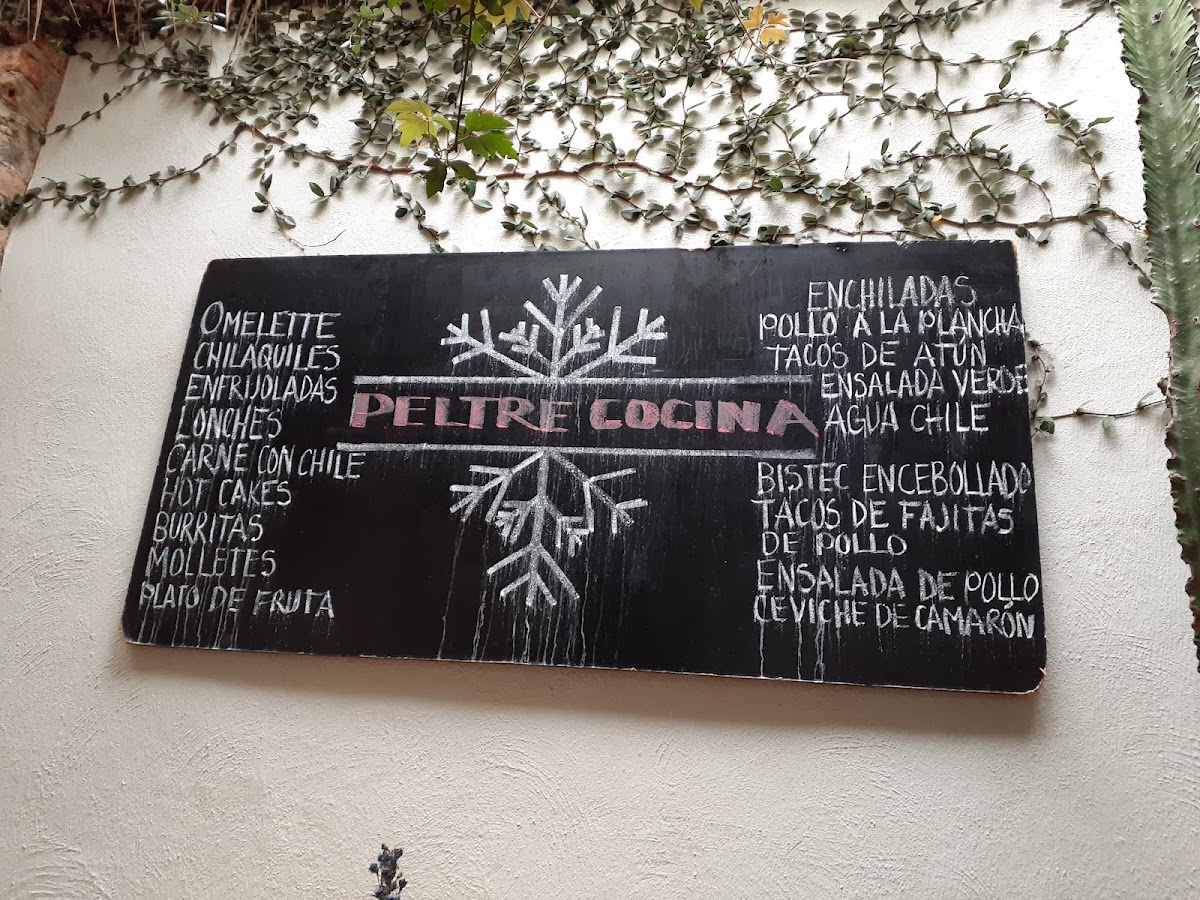 OMELETTE
CHILAQUILES
ENFRIJOLADAS
LONCHES
CARNE CON CHILE
HOT CAKES
BURRITAS
MOLLETES
PLATO DE FRUTA
PELTRE COCINA
ENCHILADAS
POLLO A LA PLANCHA
TACOS DE ATÚN
ENSALADA VERDE
AGUA CHILE
BISTEC ENCEBOLLADO
TACOS DE FAJITAS
DE POLLO
ENSALADA DE POLLO
CEVICHE DE CAMARÓN